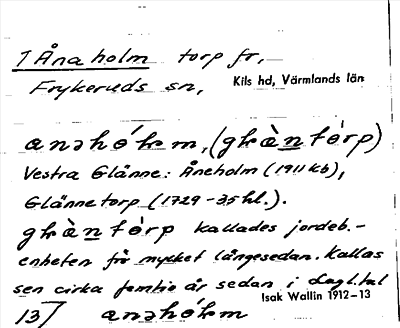 1 Åna holm torp fr,
Frykeruds sn, Kils hd, Värmlands län
anəhólm, (glæ̀ntórp)
Vestra Glänne: Åneholm (1911 kb),
Glännetorp (1729-35 hl.).
glæ̀ntórp kallades jordeb.-
enheten för mycket längesedan. Kallas
sen cirka femtio år sedan i dagl. tal
13] anəhólm Isak Wallin 1912-13